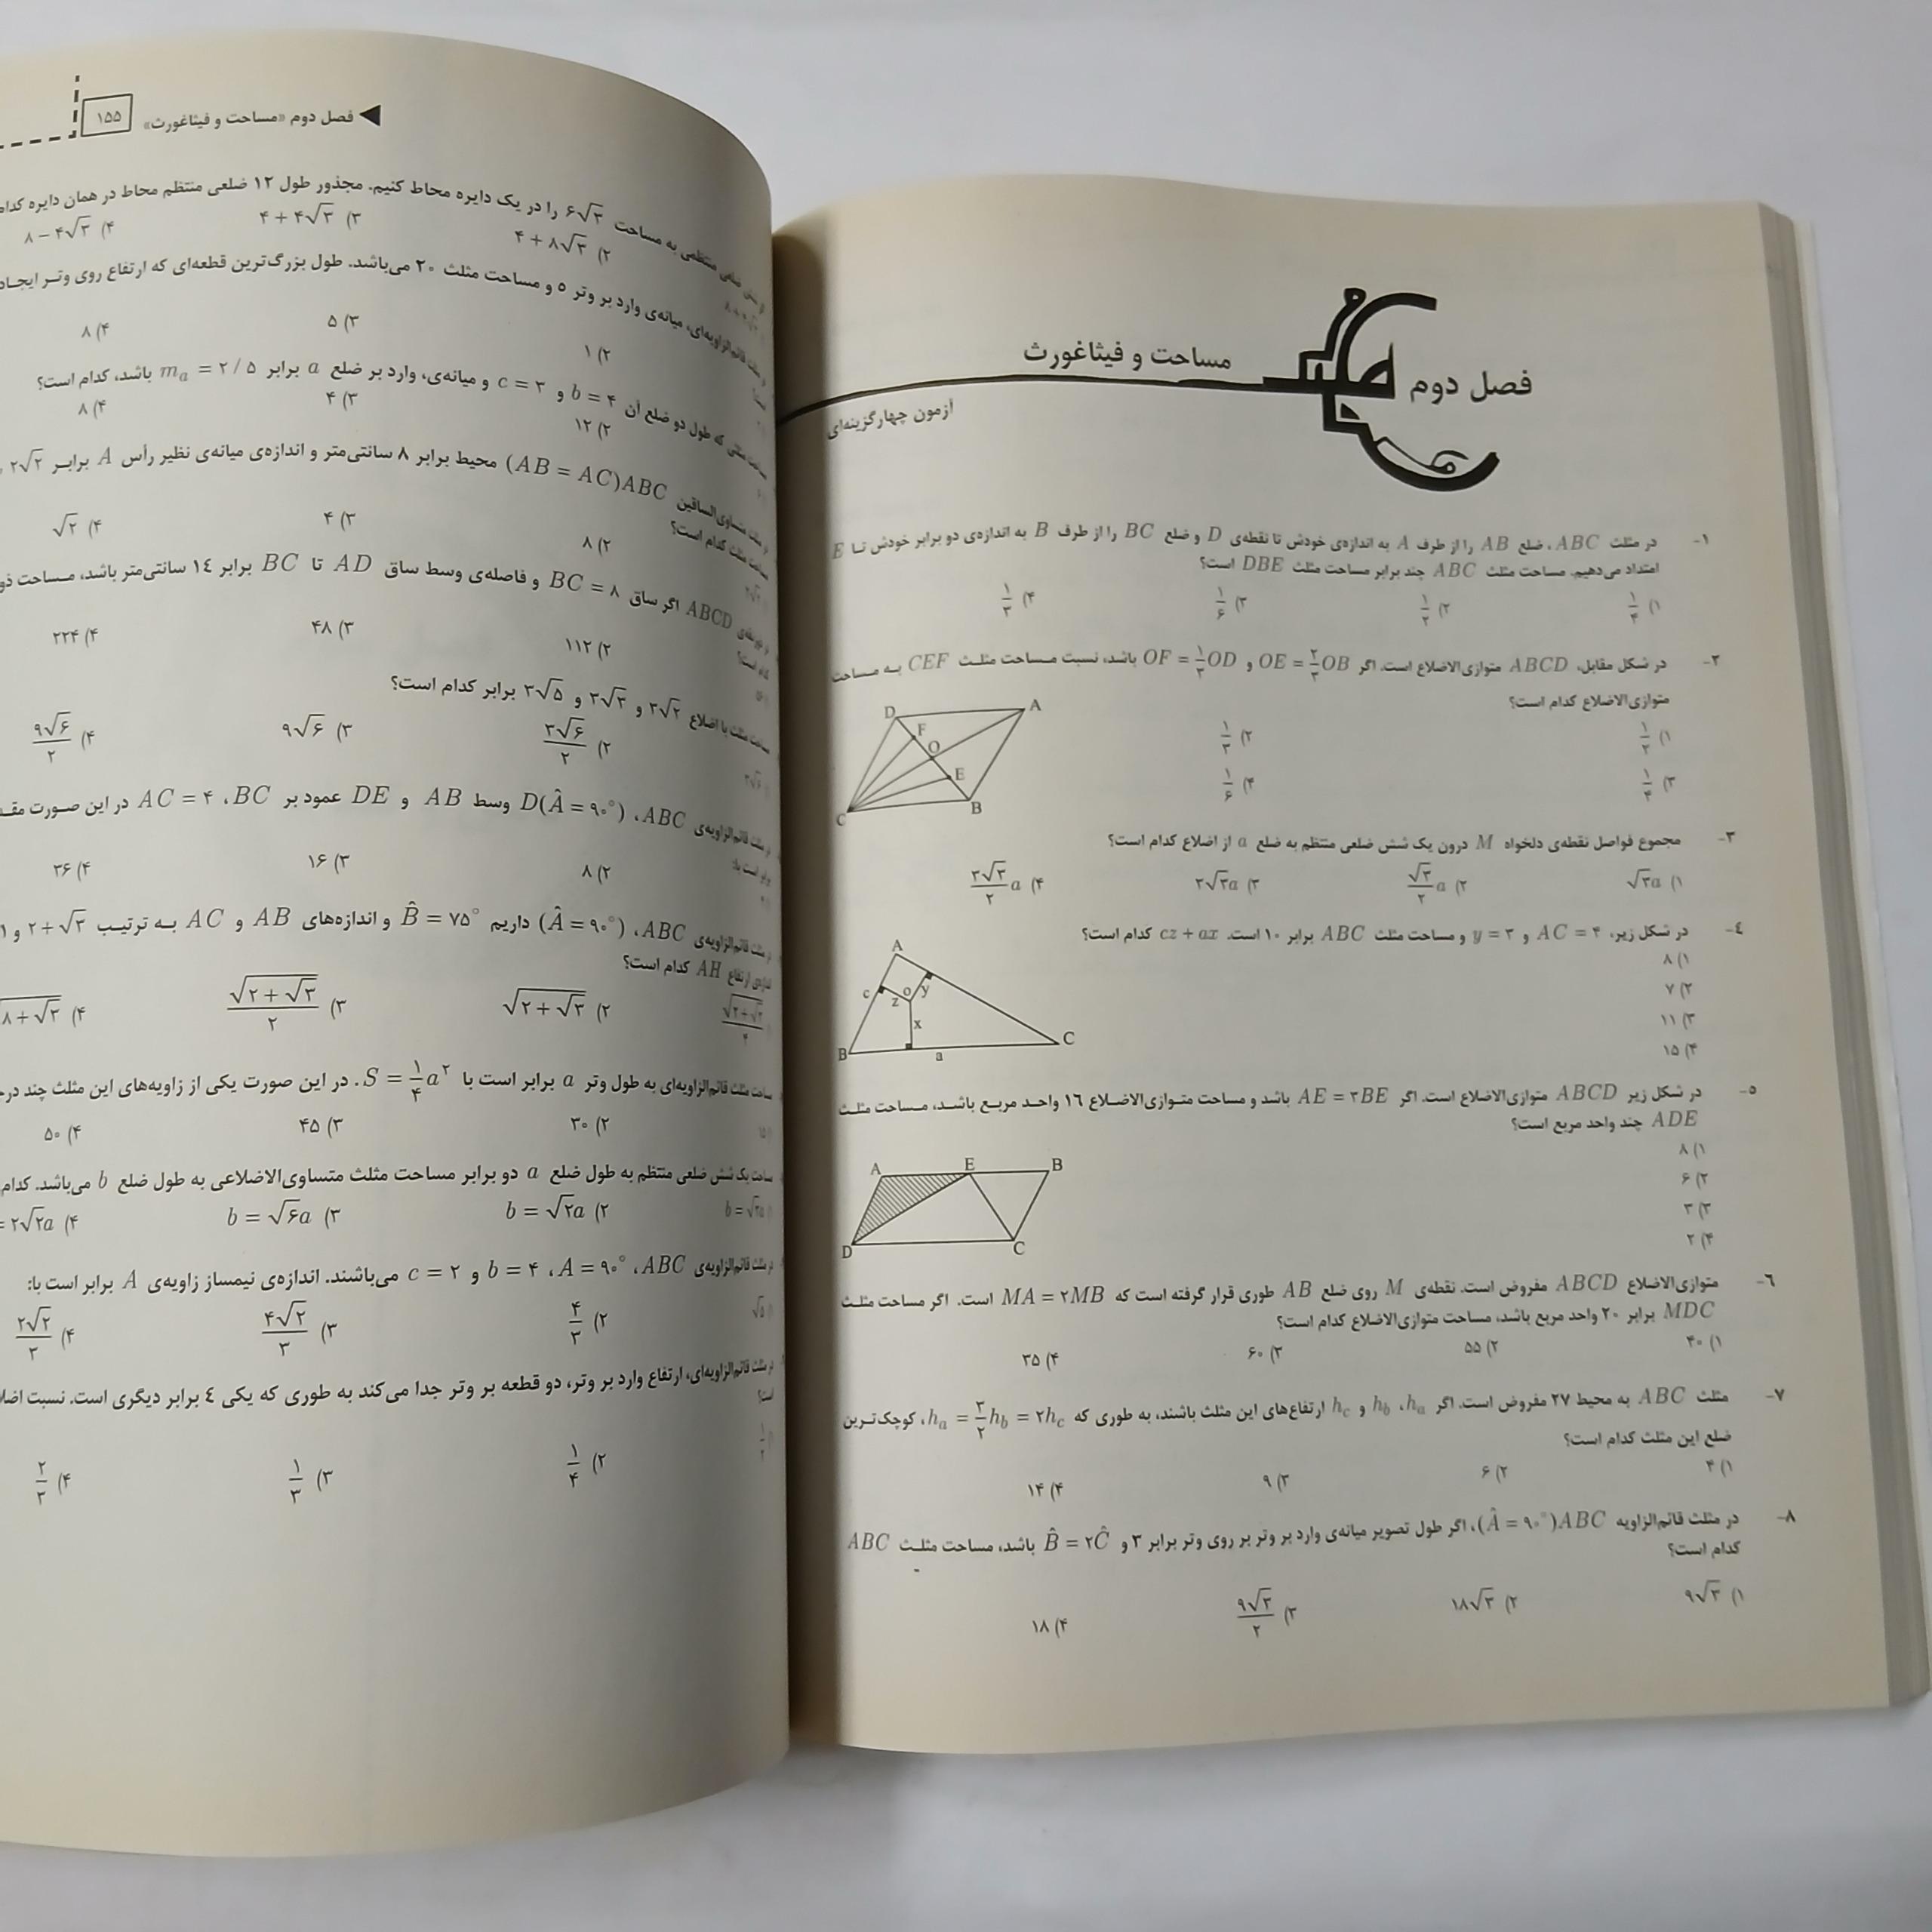 فصل دوم
مساحت و فیثاغورث
آزمون چهارگزینه‌ای
۱- در مثلث ABC، ضلع AB را از طرف A به اندازه‌ی خودش تا نقطه‌ی D و ضلع BC را از طرف B به اندازه‌ی دو برابر خودش تـا E
امتداد می‌دهیم. مساحت مثلث ABC چند برابر مساحت مثلث DBE است؟
۱) ۱/۴ ۲) ۱/۲ ۳) ۱/۶ ۴) ۱/۳
۲- در شکل مقابل، ABCD متوازی‌الاضلاع است. اگر OE = ۲/۳ OB و OF = ۱/۳ OD باشد، نسبت مـساحت مثلـث CEF بـه مـساحت
متوازی‌الاضلاع کدام است؟
۱) ۱/۲ ۲) ۱/۳
۳) ۱/۴ ۴) ۱/۶
D A F O E B C
۳- مجموع فواصل نقطه‌ی دلخواه M درون یک شش ضلعی منتظم به ضلع a از اضلاع کدام است؟
۱) √۳a ۲) √۳/۲ a ۳) ۳√۳a ۴) ۳√۳/۲ a
۴- در شکل زیر، AC = ۴ و y = ۳ و مساحت مثلث ABC برابر ۱۰ است. cz + ax کدام است؟
۱) ۸
۲) ۷
۳) ۱۱
۴) ۱۵
A c z o y x B a C
۵- در شکل زیر ABCD متوازی‌الاضلاع است. اگر AE = ۳BE باشد و مساحت متـوازی‌الاضـلاع ۱۶ واحـد مربـع باشـد، مـساحت مثلـث
ADE چند واحد مربع است؟
۱) ۸
۲) ۶
۳) ۳
۴) ۲
A E B D C
۶- متوازی‌الاضلاع ABCD مفروض است. نقطه‌ی M روی ضلع AB طوری قرار گرفته است که MA = ۲MB است. اگر مساحت مثلـث
MDC برابر ۲۰ واحد مربع باشد، مساحت متوازی‌الاضلاع کدام است؟
۱) ۴۰ ۲) ۵۵ ۳) ۶۰ ۴) ۳۵
۷- مثلث ABC به محیط ۲۷ مفروض است. اگر hₐ، h_b و h_c ارتفاع‌های این مثلث باشند، به طوری که hₐ = ۳/۲ h_b = ۲h_c، کوچک‌تـرین
ضلع این مثلث کدام است؟
۱) ۴ ۲) ۶ ۳) ۹ ۴) ۱۴
۸- در مثلث قائم‌الزاویه ABC(Â = ۹۰°)، اگر طول تصویر میانه‌ی وارد بر وتر بر روی وتر برابر ۳ و B̂ = ۲Ĉ باشد، مساحت مثلـث ABC
کدام است؟
۱) ۹√۳ ۲) ۱۸√۳ ۳) ۹√۳/۲ ۴) ۱۸
فصل دوم «مساحت و فیثاغورث» ۱۵۵
ضلعی منتظمی به مساحت ۶√۳ را در یک دایره محاط کنیم. مجذور طول ۱۲ ضلعی منتظم محاط در همان دایره
۲) ۴ + ۸√۳ ۳) ۴ + ۴√۳ ۴) ۸ − ۴√۳
در مثلث قائم‌الزاویه‌ای، میانه‌ی وارد بر وتر ۵ و مساحت مثلث ۲۰ می‌باشد. طول بزرگ‌ترین قطعه‌ای که ارتفاع روی وتـر
۲) ۱ ۳) ۵ ۴) ۸
مساحت مثلثی که طول دو ضلع آن b = ۴ و c = ۳ و میانه‌ی، وارد بر ضلع a برابر mₐ = ۲/۵ باشد، کدام است؟
۲) ۱۲ ۳) ۴ ۴) ۸
در مثلث متساوی‌الساقین ABC(AB = AC) محیط برابر ۸ سانتی‌متر و اندازه‌ی میانه‌ی نظیر رأس A برابـر ۲√۲
مساحت مثلث کدام است؟
۲) ۸ ۳) ۴ ۴) √۲
ABCD اگر ساق BC = ۸ و فاصله‌ی وسط ساق AD تا BC برابر ۱۴ سانتی‌متر باشد، مـساحت
کدام است؟
۲) ۱۱۲ ۳) ۴۸ ۴) ۲۲۴
مساحت مثلث با اضلاع ۳√۲ و ۳√۳ و ۳√۵ برابر کدام است؟
۲) ۳√۶/۲ ۳) ۹√۶ ۴) ۹√۶/۲
در مثلث قائم‌الزاویه‌ی ABC، (Â = ۹۰°) D وسط AB و DE عمود بر BC، AC = ۴ در این صـورت
برابر است با:
۲) ۸ ۳) ۱۶ ۴) ۳۶
در مثلث قائم‌الزاویه‌ی ABC، (Â = ۹۰°) داریم B̂ = ۷۵° و اندازه‌های AB و AC بـه ترتیـب ۲ + √۳ و ۱
اندازه‌ی ارتفاع AH کدام است؟
۲) √(۲ + √۳) ۳) √(۲ + √۳)/۲ ۴) ۸ + √۳
مساحت مثلث قائم‌الزاویه‌ای به طول وتر a برابر است با S = ۱/۴ a². در این صورت یکی از زاویه‌های این مثلث چند
۲) ۳۰ ۳) ۴۵ ۴) ۵۰
مساحت یک شش ضلعی منتظم به طول ضلع a دو برابر مساحت مثلث متساوی‌الاضلاعی به طول ضلع b می‌باشد.
۲) b = √۲a ۳) b = √۶a ۴) = ۲√۲a
در مثلث قائم‌الزاویه‌ی ABC، A = ۹۰°، b = ۴ و c = ۲ می‌باشند. اندازه‌ی نیمساز زاویه‌ی A برابر است با:
۱) √۵ ۲) ۴/۳ ۳) ۴√۲/۳ ۴) ۲√۲/۳
در مثلث قائم‌الزاویه‌ای، ارتفاع وارد بر وتر، دو قطعه بر وتر جدا می‌کند به طوری که یکی ۴ برابر دیگری است. نسبت
است؟
۲) ۱/۴ ۳) ۱/۳ ۴) ۲/۳